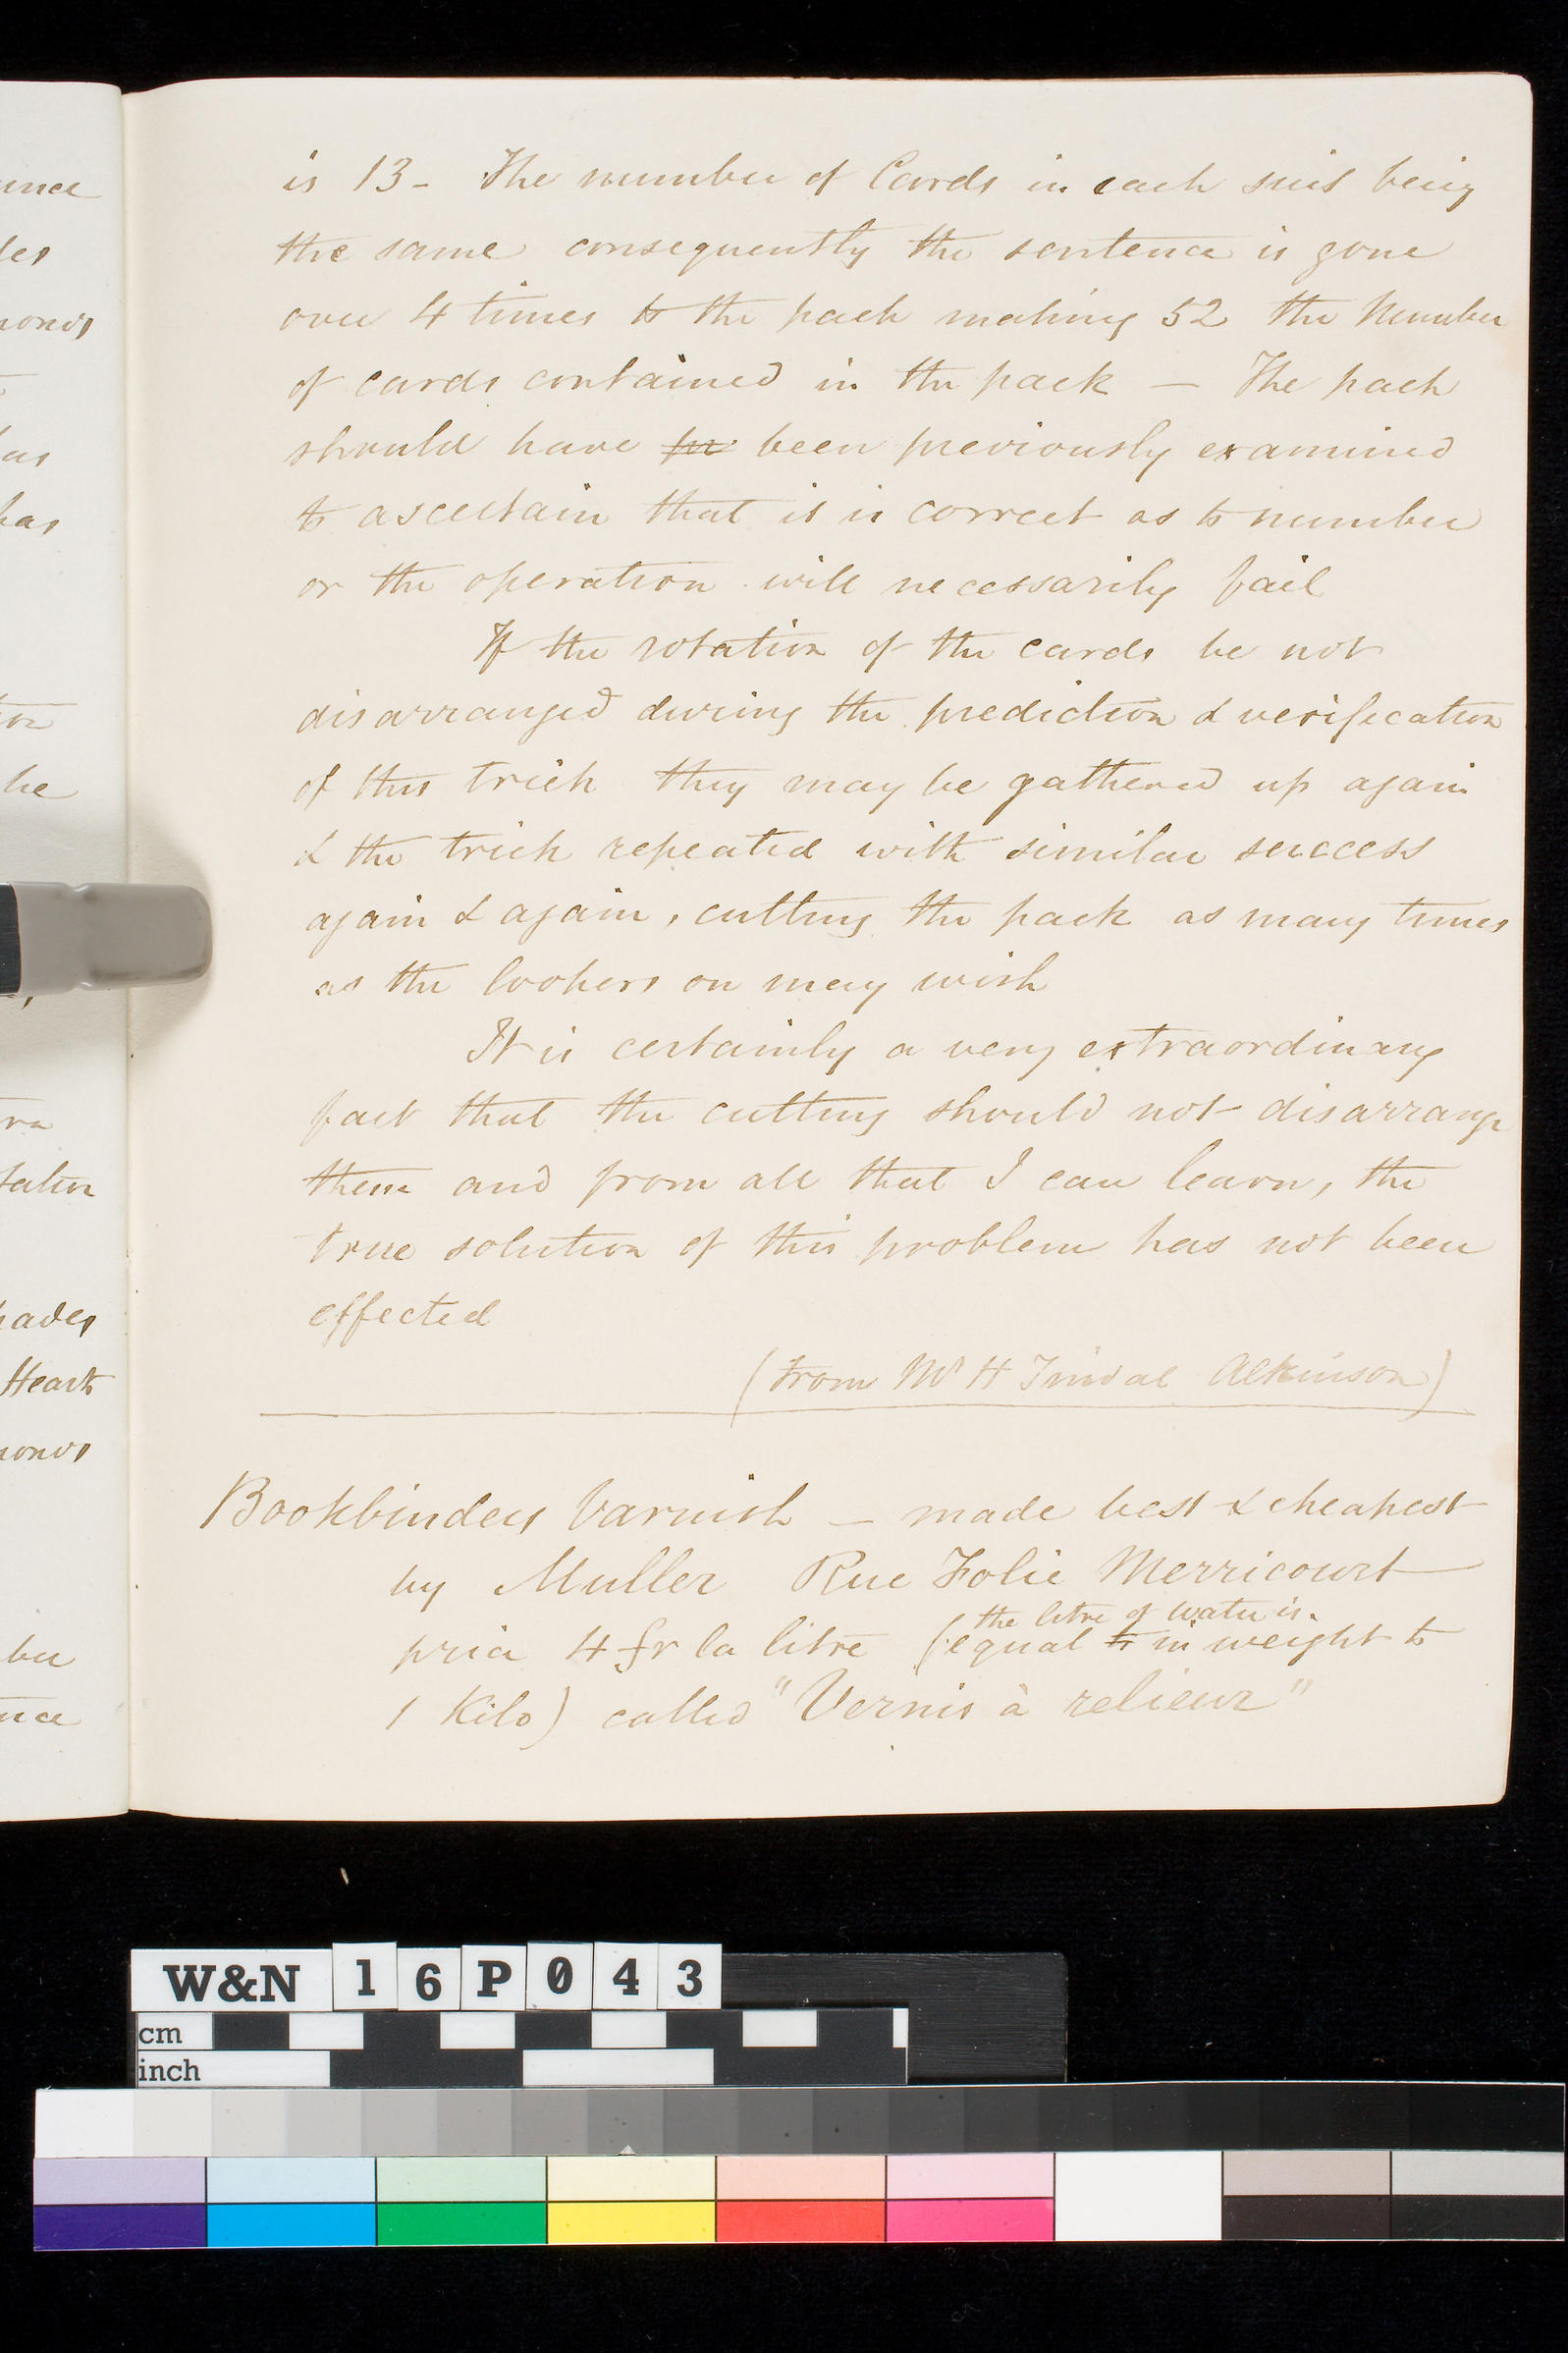 is 13 - The number of Cards in each suit being
the same consequently the sentence is gone
over 4 times to the pack making 52 the Number
of cards contained in the pack — The pack
should have pr been previously examined
to ascertain that it is correct as to number
or the operation will necessarily fail
If the rotation of the cards be not
disarranged during the prediction & verification
of this trick they may be gathered up again
& the trick repeated with similar success
again & again, cutting the pack as many times
as the lookers on may wish
It is certainly a very extraordinary
fact that the cutting should not disarrange
them and from all that I can learn, the
true solution of this problem has not been
effected
(From Mr H Tindal Atkinson)
Bookbinders Varnish — made best & cheapest
by Muller Rue Folie Merricourt
the litre of water is
price 4 fr la litre (equal to in weight to
1 Kilo) called "Vernis à relieur"
unce
des
monds
as
has
on
he
tra
hades
Hearts
monds
ber
nce
W&N 16P043
cm
inch